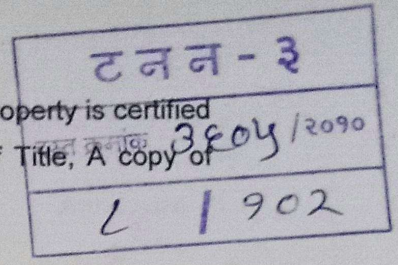 ट न न - ३
operty is certified
दस्त क्रमांक ३६०५ /२०१०
Title, A copy of
८ / १०२